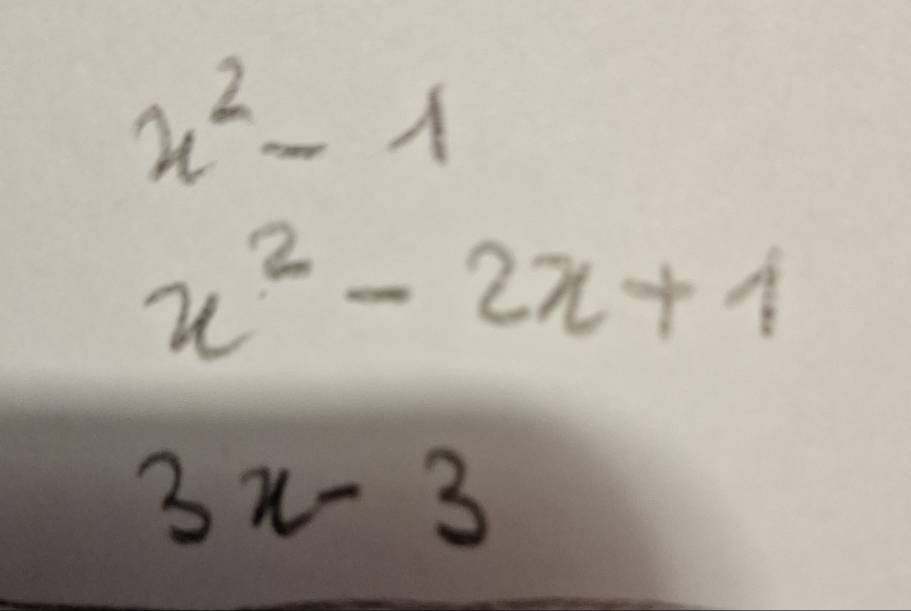 x² - 1
x² - 2x + 1
3x - 3